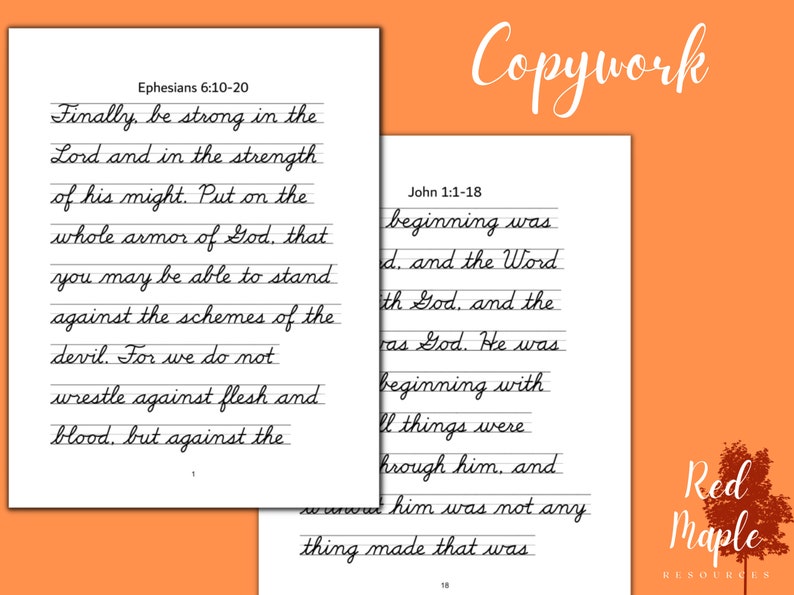 Copywork
Ephesians 6:10-20
Finally, be strong in the
Lord and in the strength
of his might. Put on the
whole armor of God, that
you may be able to stand
against the schemes of the
devil. For we do not
wrestle against flesh and
blood, but against the
1
John 1:1-18
beginning was
rd, and the Word
ith God, and the
was God. He was
beginning with
ll things were
through him, and
without him was not any
thing made that was
18
Red
Maple
RESOURCES